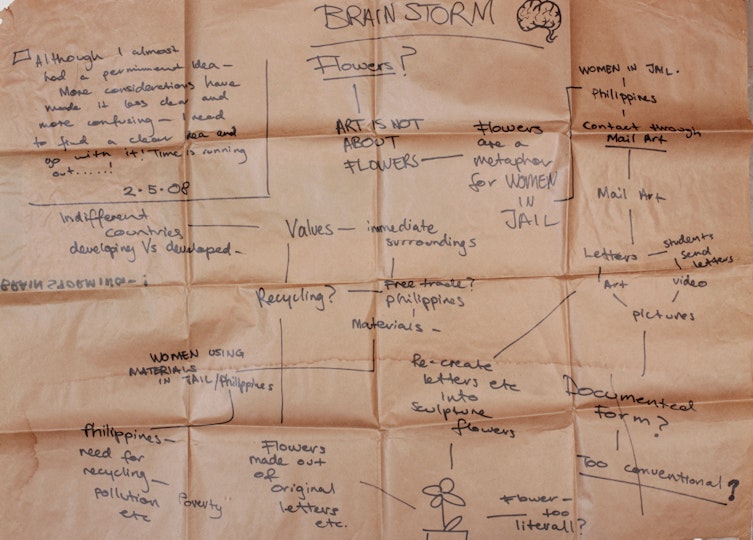 BRAIN STORM
Although I almost
had a perminment idea -
More considerations have
made it less clear and
more confusing - I need
to find a clear idea and
go with it! Time is running
out......!
2.5.08
Flowers?
ART IS NOT
ABOUT
FLOWERS
Flowers
are a
metaphor
for WOMEN
IN
JAIL
WOMEN IN JAIL.
Philippines
Contact through
Mail Art
Mail Art
Letters
students
send
letters
Art
video
pictures
Documented
form?
Too conventional?
Indifferent
countries
developing Vs developed -
Values - immediate
surroundings
BRAIN STORMING - !
Recycling?
Free trade?
Philippines
Materials -
WOMEN USING
MATERIALS
IN JAIL/Philippines
Re-create
letters etc
into
sculpture
flowers
Philippines -
need for
recycling -
pollution Poverty
etc
Flowers
made out
of
original
letters
etc.
Flower -
too
literall?